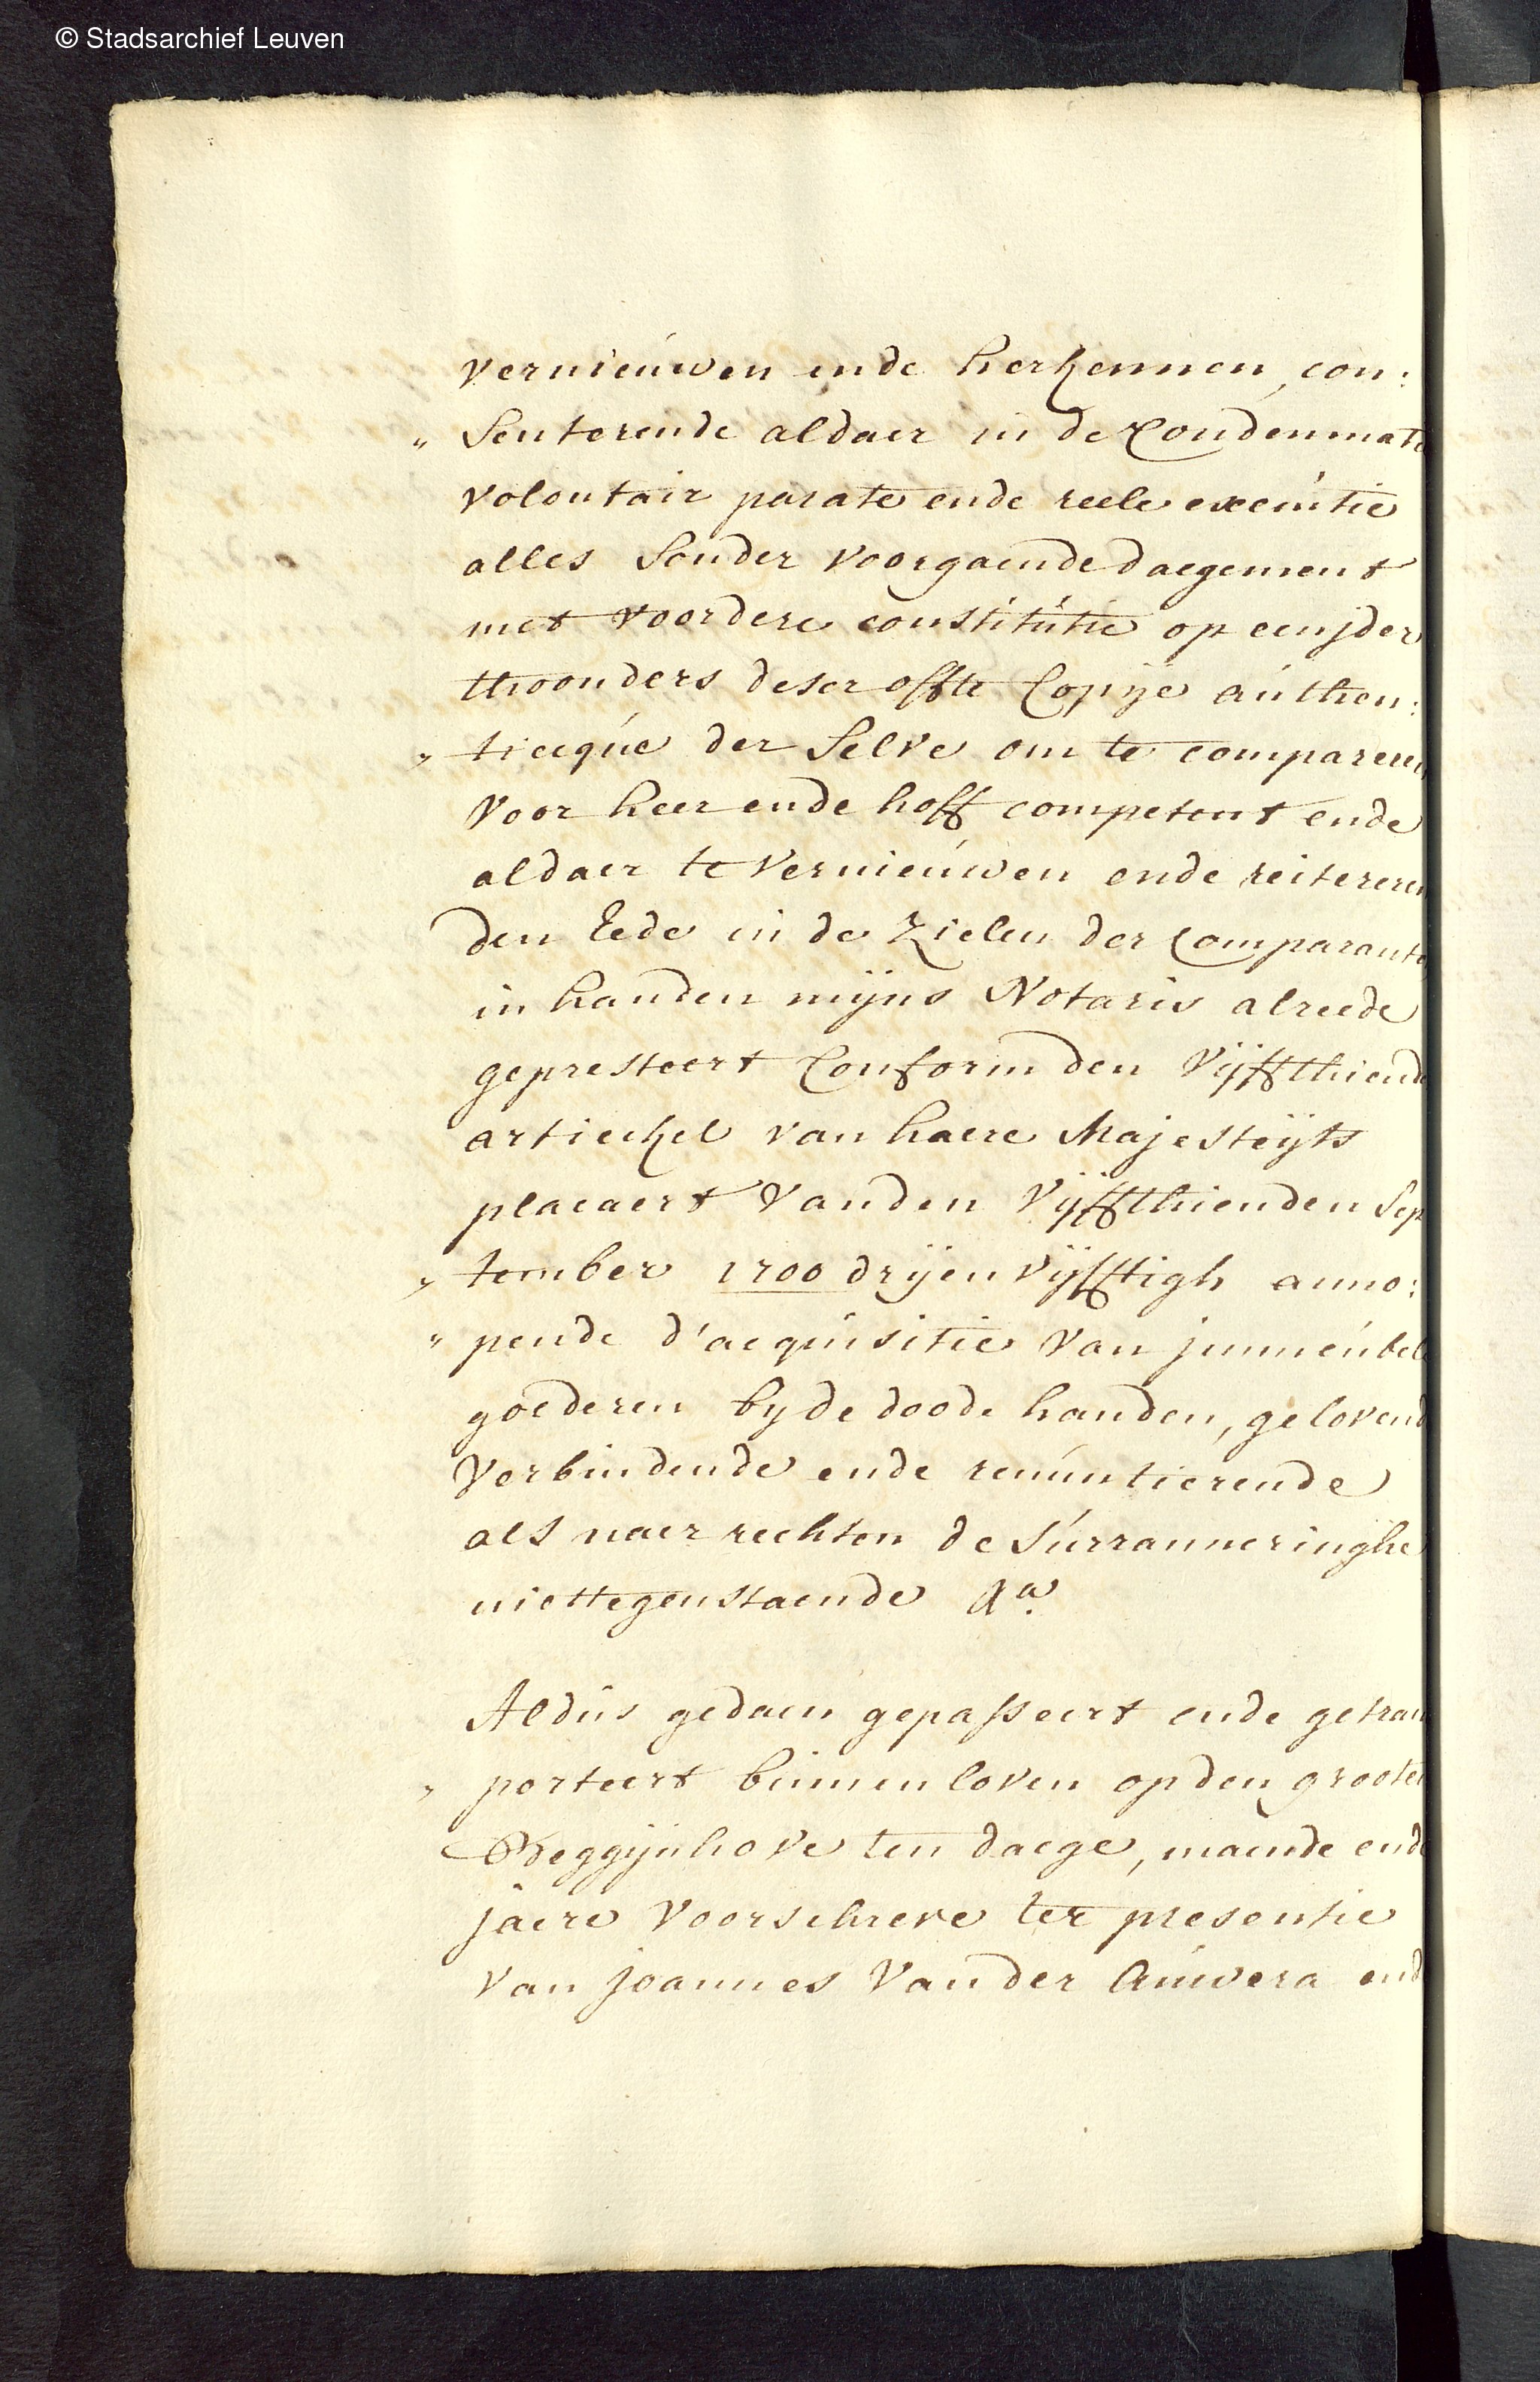 © Stadsarchief Leuven
vernieuwen ende herkennen, con:
" senterende aldaer in de Condemnati
volontair parate ende reele executie
alles sonder voorgaende daegement
met voordere constitutie op eenjder
thoonders deser offte Copije authen:
" ticque der selve om te compareren
voor heer ende hoff competent ende
aldaer te vernieuwen ende reitereren
den Eede in de Zielen der Comparante
in handen mijns Notaris alreede
gepresteert Conform den vijffthiende
artickel van haere Majesteijts
placaert vanden vijffthienden Sep
" tember 1700 drijenvijfftigh anno:
" pende d'acquisitie van jmmeubele
goederen by de doode handen, gelovend
verbindende ende renuntierende
als naer rechten de surranneringhe
niettegenstaende
Aldus gedaen gepasseert ende getran
" porteert binnen loven op den grooten
Beggijnhove ten daege, maende ende
jaere voorschreve ter presentie
van joannes Vander Auwera end